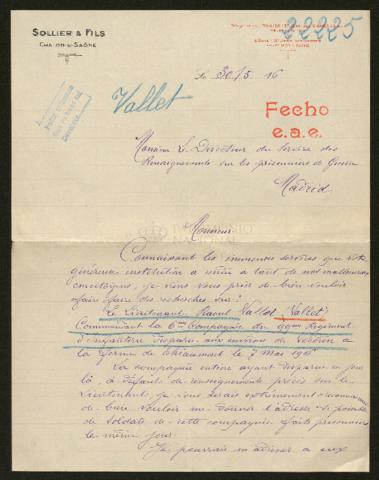 SOLLIER & FILS
CHALON-S-SAÔNE
22225
Le 30/5 16
Vallet
Fecho
e.a.e.
Monsieur Le Directeur du Service des
Renseignements sur les prisonniers de Guerre
Madrid
Monsieur
Connaissant les immenses services que votre
généreuse institution a rendu à tant de nos malheureux
concitoyens, je viens vous prier de bien vouloir
faire des recherches sur:
Le Lieutenant Raoul Vallot (Vallet)
Commandant la 6me Compagnie du 99me Régiment
d'Infanterie disparu aux environs de Verdun à
la ferme de Thiaumont le 7 Mai 1916
La compagnie entière ayant disparu ce jour
là, à défaut de renseignements précis sur le
Lieutenant, je vous serais extrêmement reconnaissant
de bien vouloir me donner l'adresse si possible
de soldats de cette compagnie faits prisonniers
le même jour.
Je pourrais m'adresser à eux